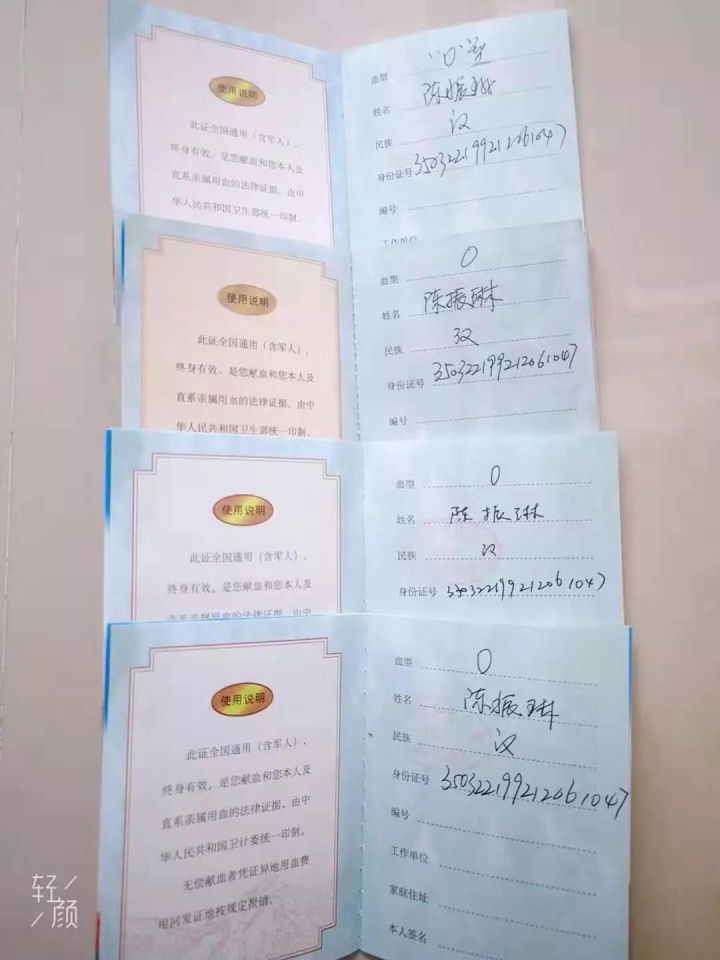 使用说明
此证全国通用（含军人），
终身有效。是您献血和您本人及
直系亲属用血的法律证据。由中
华人民共和国卫生部统一印制。
血型 "O"型
姓名 陈振琳
民族 汉
身份证号 350322199212061047
编号
工作单位
使用说明
此证全国通用（含军人），
终身有效。是您献血和您本人及
直系亲属用血的法律证据。由中
华人民共和国卫生部统一印制。
血型 O
姓名 陈振琳
民族 汉
身份证号 350322199212061047
编号
使用说明
此证全国通用（含军人），
终身有效。是您献血和您本人及
直系亲属用血的法律证据。由中
血型 O
姓名 陈振琳
民族 汉
身份证号 350322199212061047
使用说明
此证全国通用（含军人），
终身有效。是您献血和您本人及
直系亲属用血的法律证据。由中
华人民共和国卫计委统一印制。
无偿献血者凭证异地用血费
用回发证地按规定报销。
血型 O
姓名 陈振琳
民族 汉
身份证号 350322199212061047
编号
工作单位
家庭住址
本人签名
轻颜